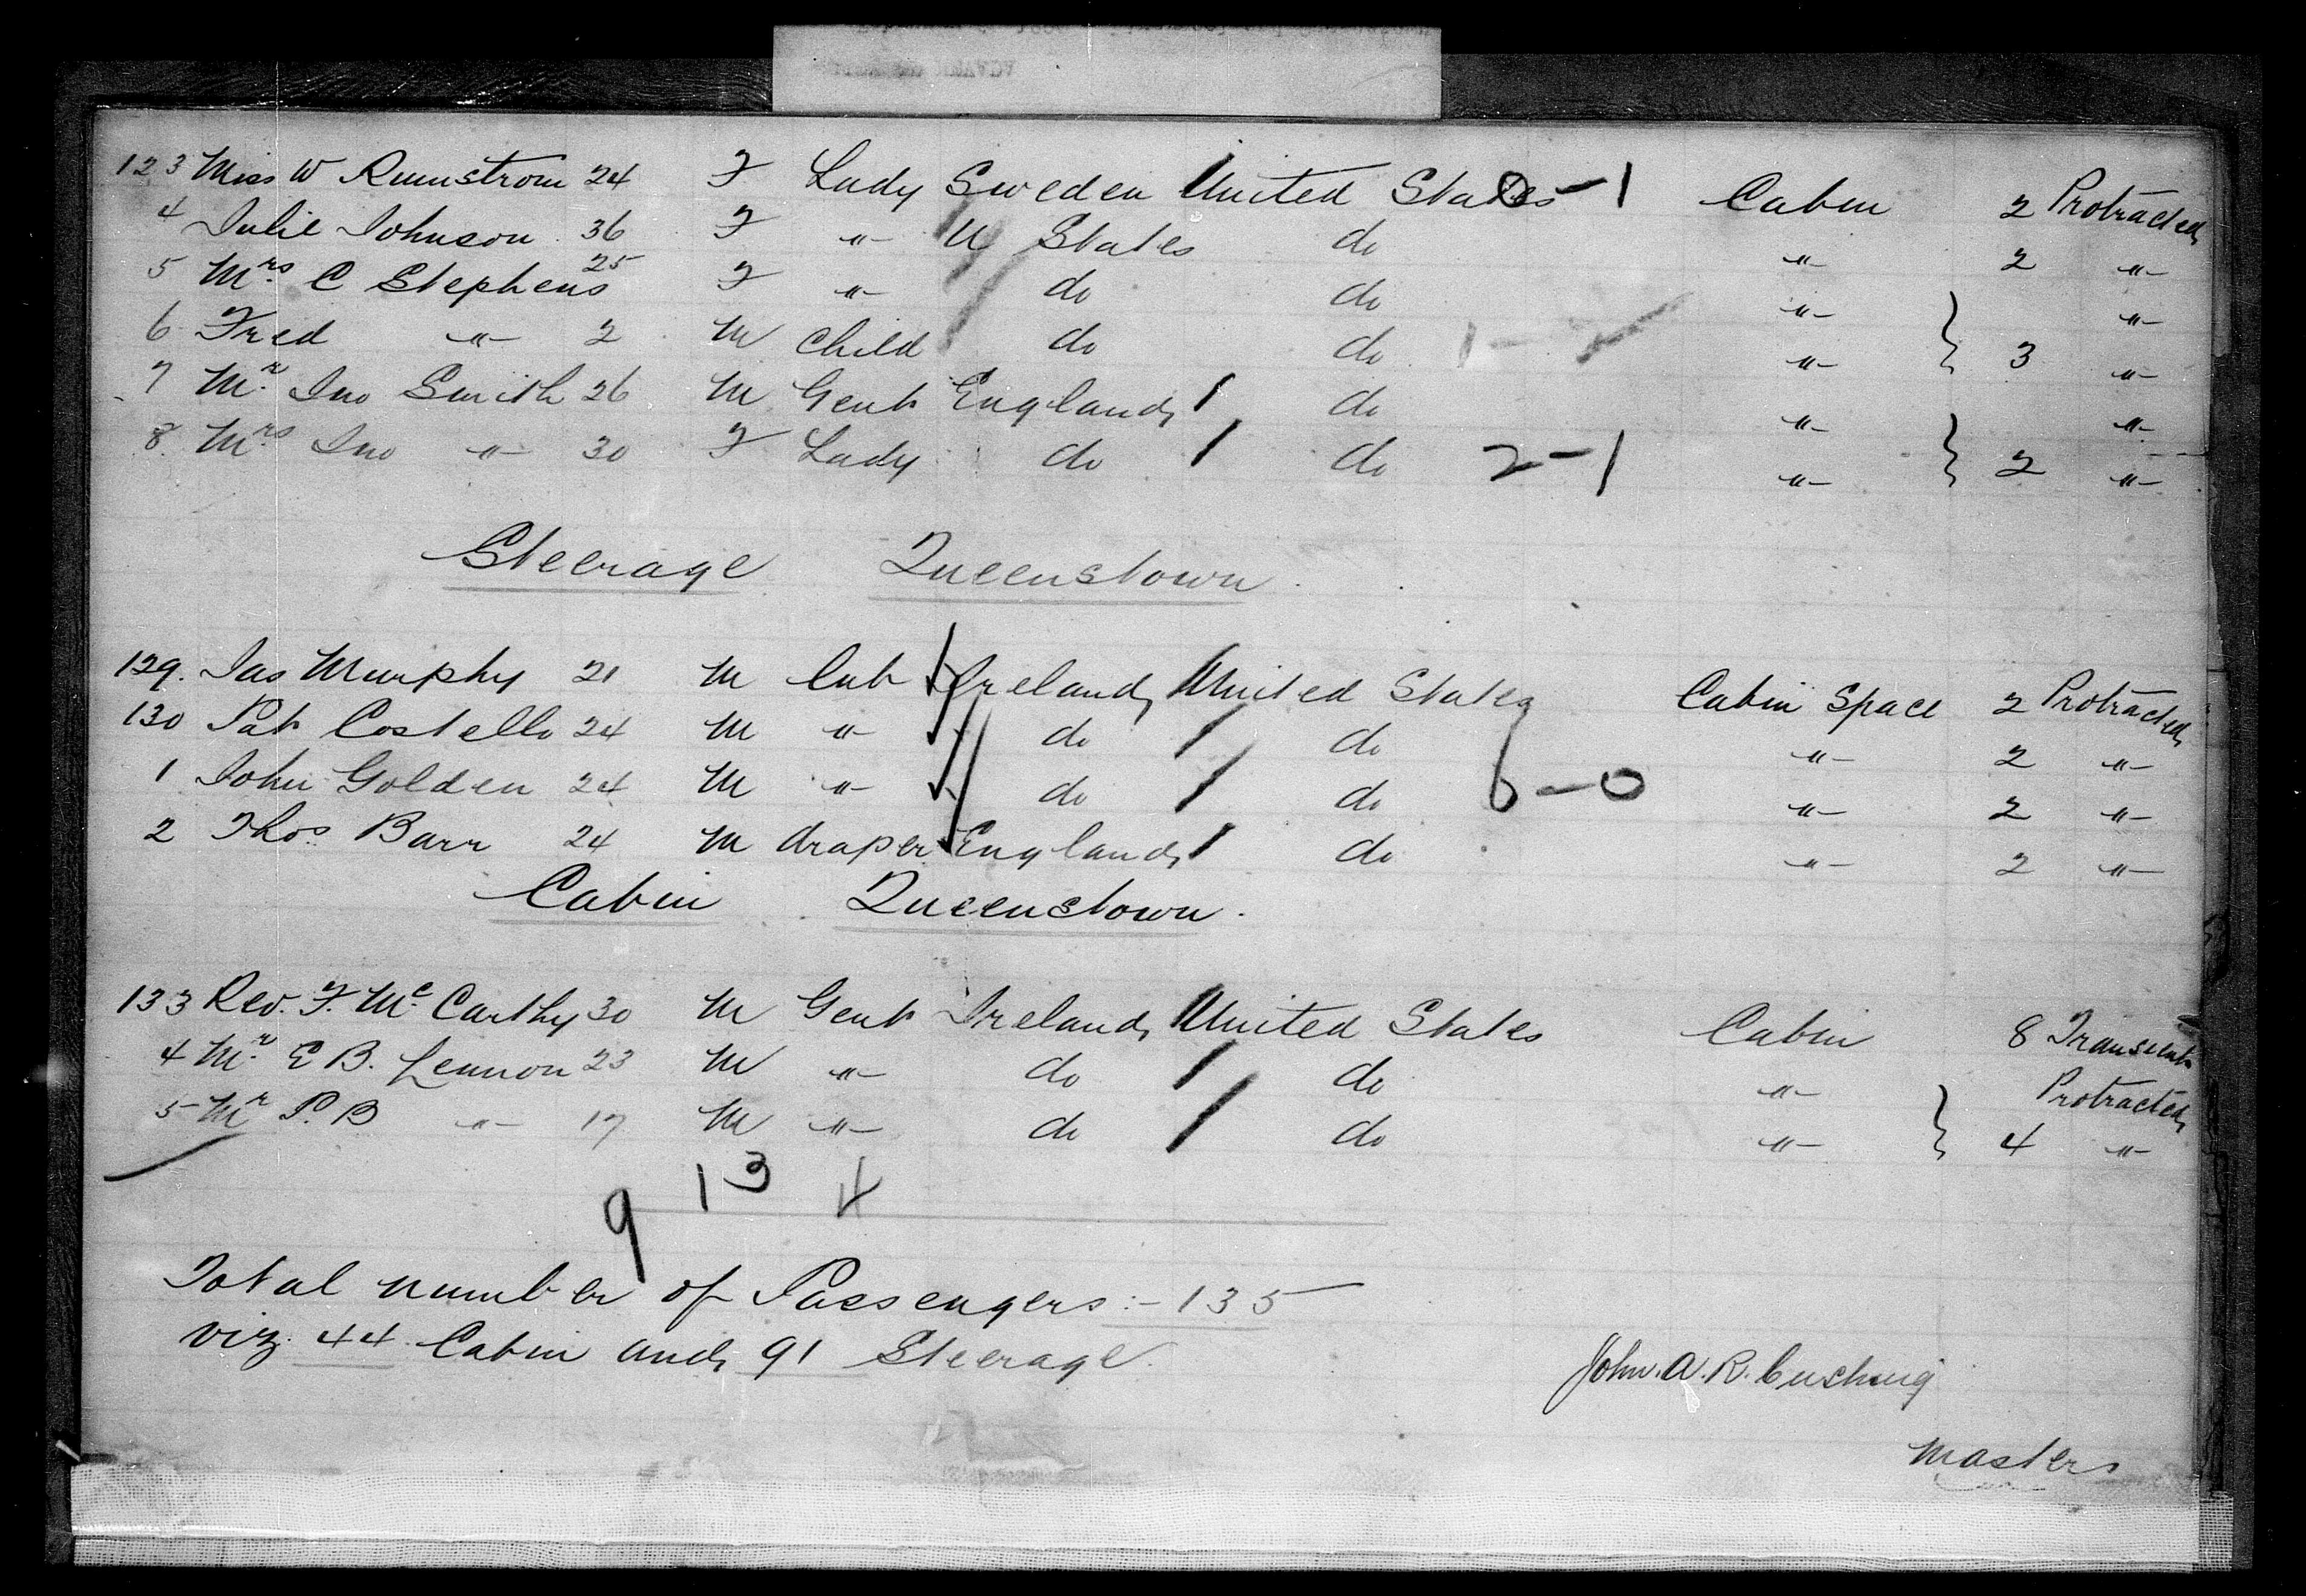 123 Miss W Runnstrom 24 F Lady Sweden United States 0-1 Cabin 2 Protracted
4 Julie Johnson 36 F " U States do " 2 "
5 Mrs. C Stephens 25 F " do do " "
6 Fred " 2 M Child do do 1- " 3 "
7 Mr. Jno Smith 26 M Gent England do " "
8. Mrs. Jno " 30 F Lady do do 2-1 " 2 "
Steerage Queenstown
129. Jas Murphy 21 M Lab Ireland United States Cabin Space 2 Protracted
130 Pat Costello 24 M " do do " 2 "
1 John Golden 24 M " do do 6-0 " 2 "
2 Thos. Barr 24 M draper England do " 2 "
Cabin Queenstown.
133 Rev. F. Mc. Carthy 30 M Gent Ireland United States Cabin 8 Transient
4 Mr. E B. Lennon 23 M " do do " Protracted
5 Mr P. B " 17 M " do do " 4 "
9 13 4
Total number of Passengers:- 135
viz. 44 Cabin and 91 Steerage.
John. A. R. Cushing
Master